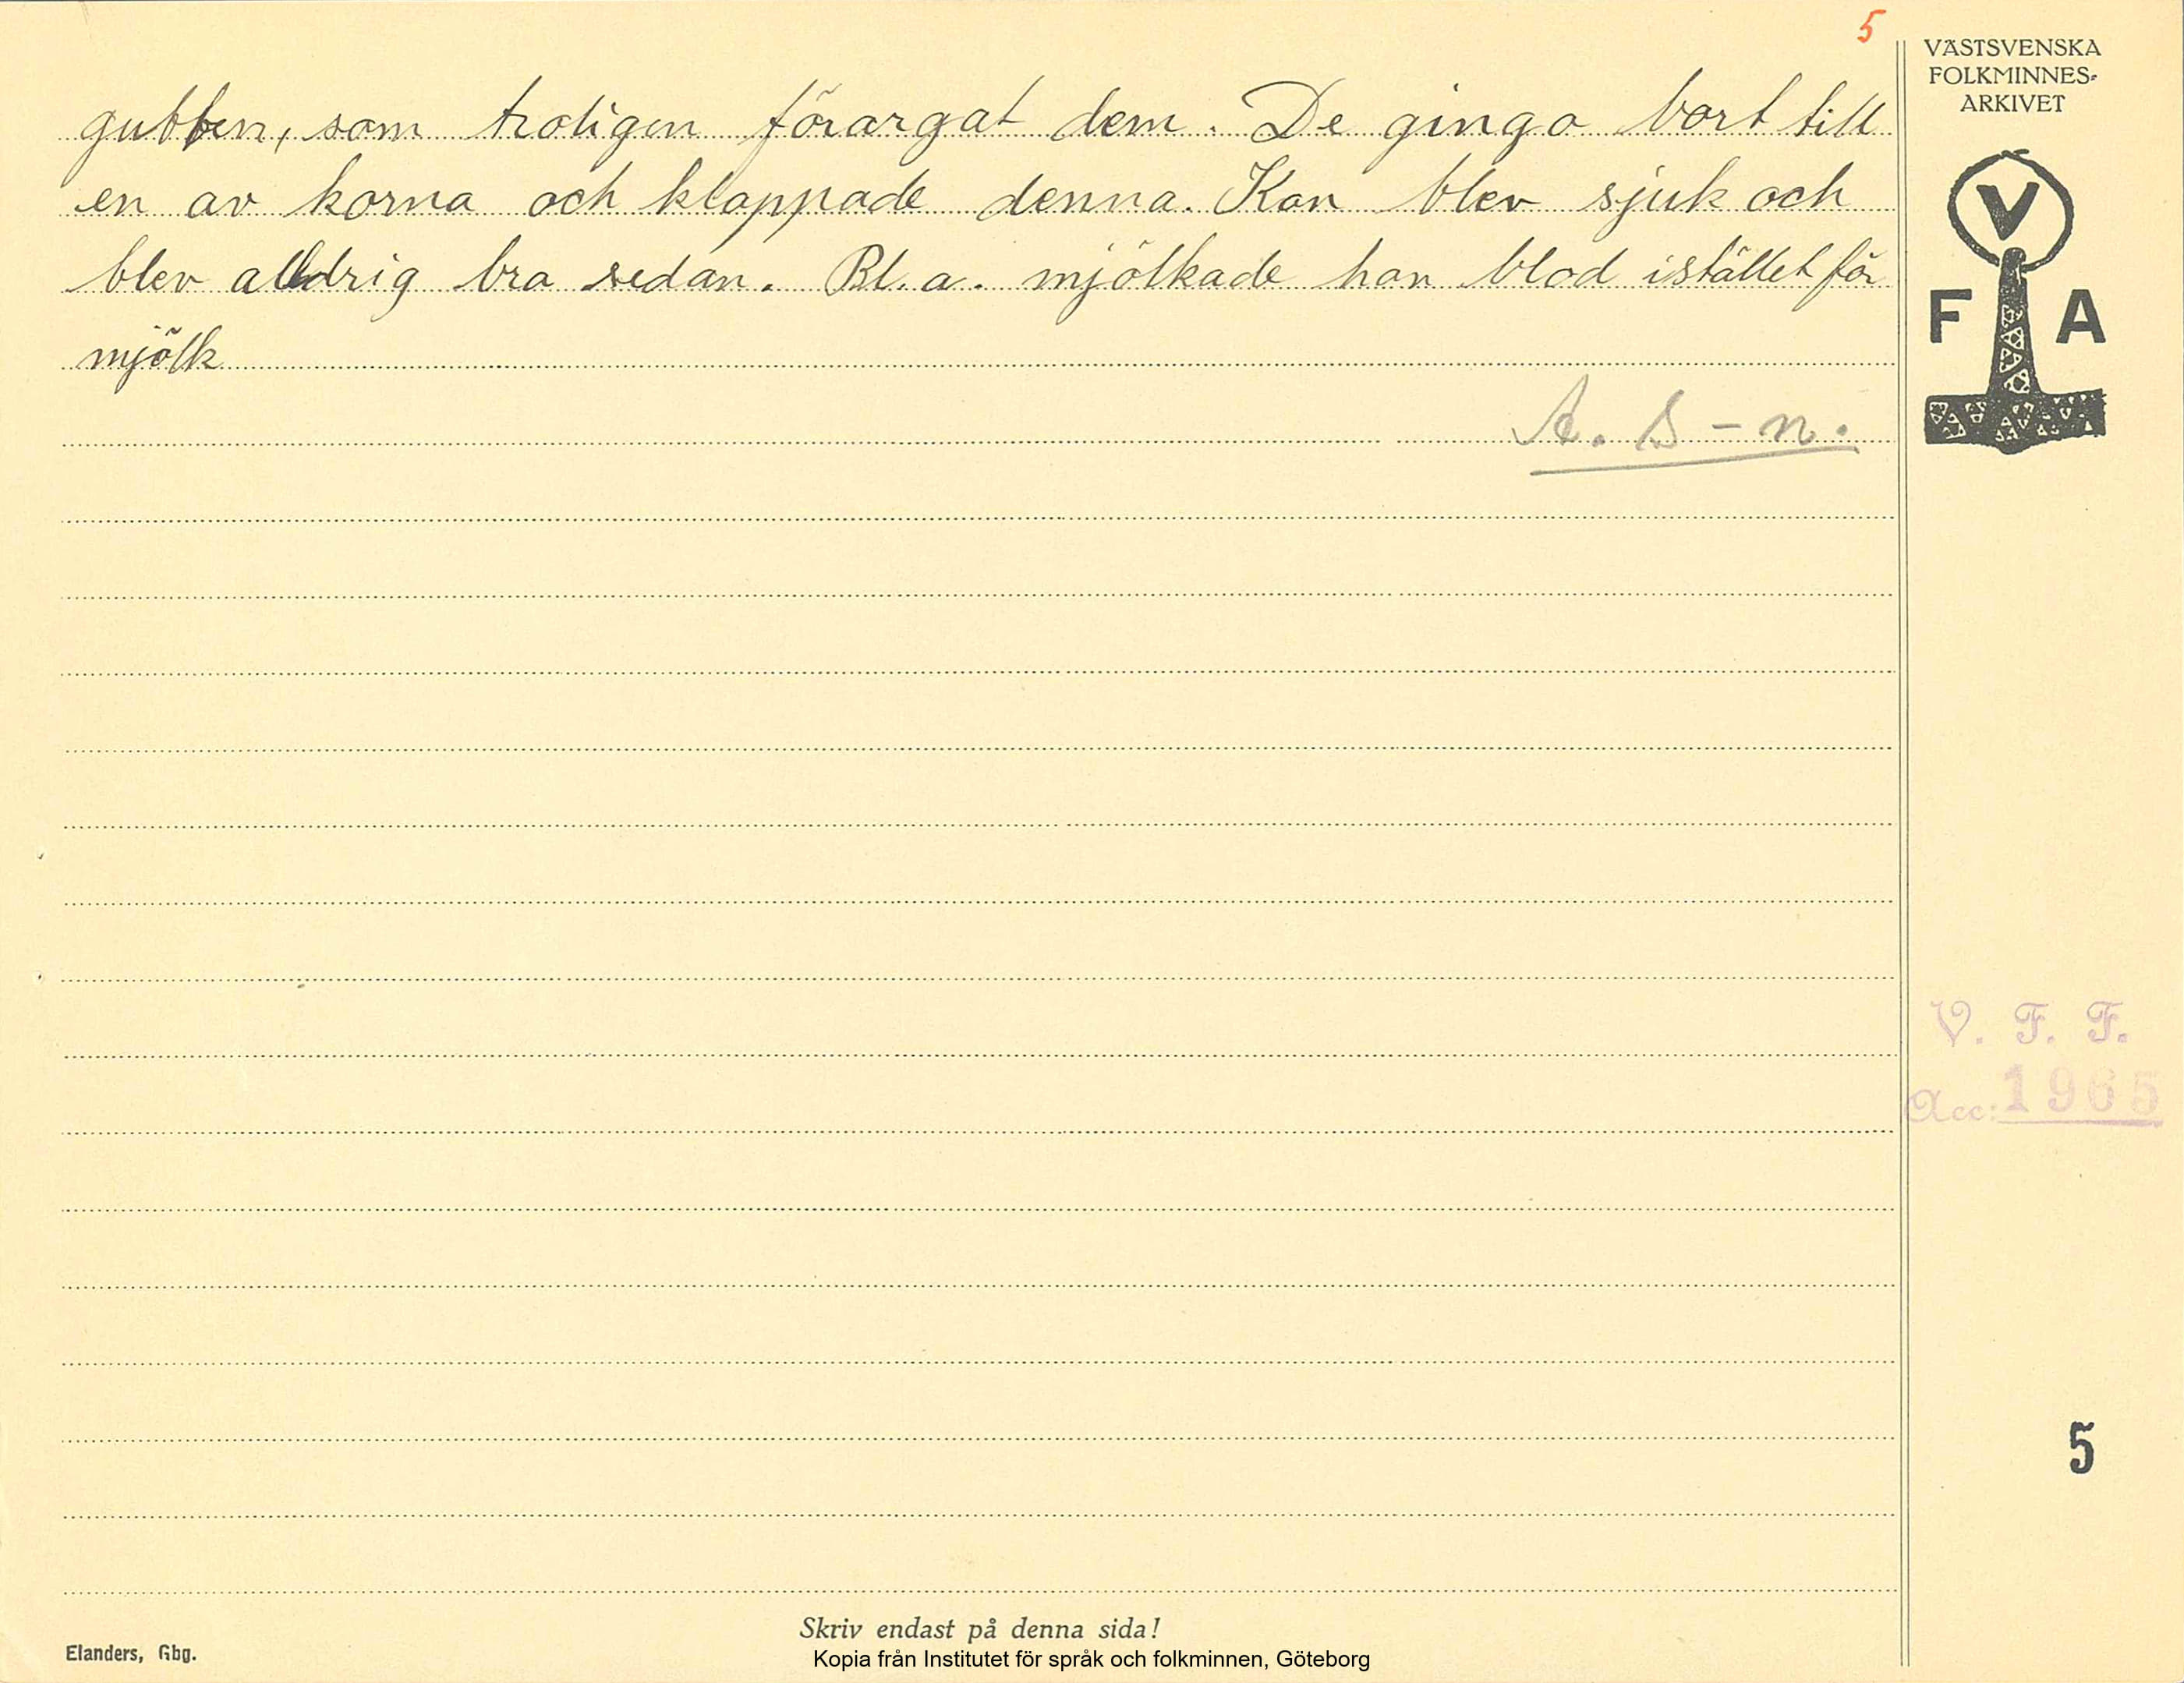 5
VÄSTSVENSKA
FOLKMINNES-
ARKIVET
V
F A
gubben, som troligen förargat dem. De gingo bort till
en av korna och klappade denna. Kon blev sjuk och
blev alldrig bra sedan. Bl. a. mjölkade hon blod istället för
mjölk
A. S-n.
V. F. F.
Acc: 1965
5
Skriv endast på denna sida!
Elanders, Gbg.
Kopia från Institutet för språk och folkminnen, Göteborg